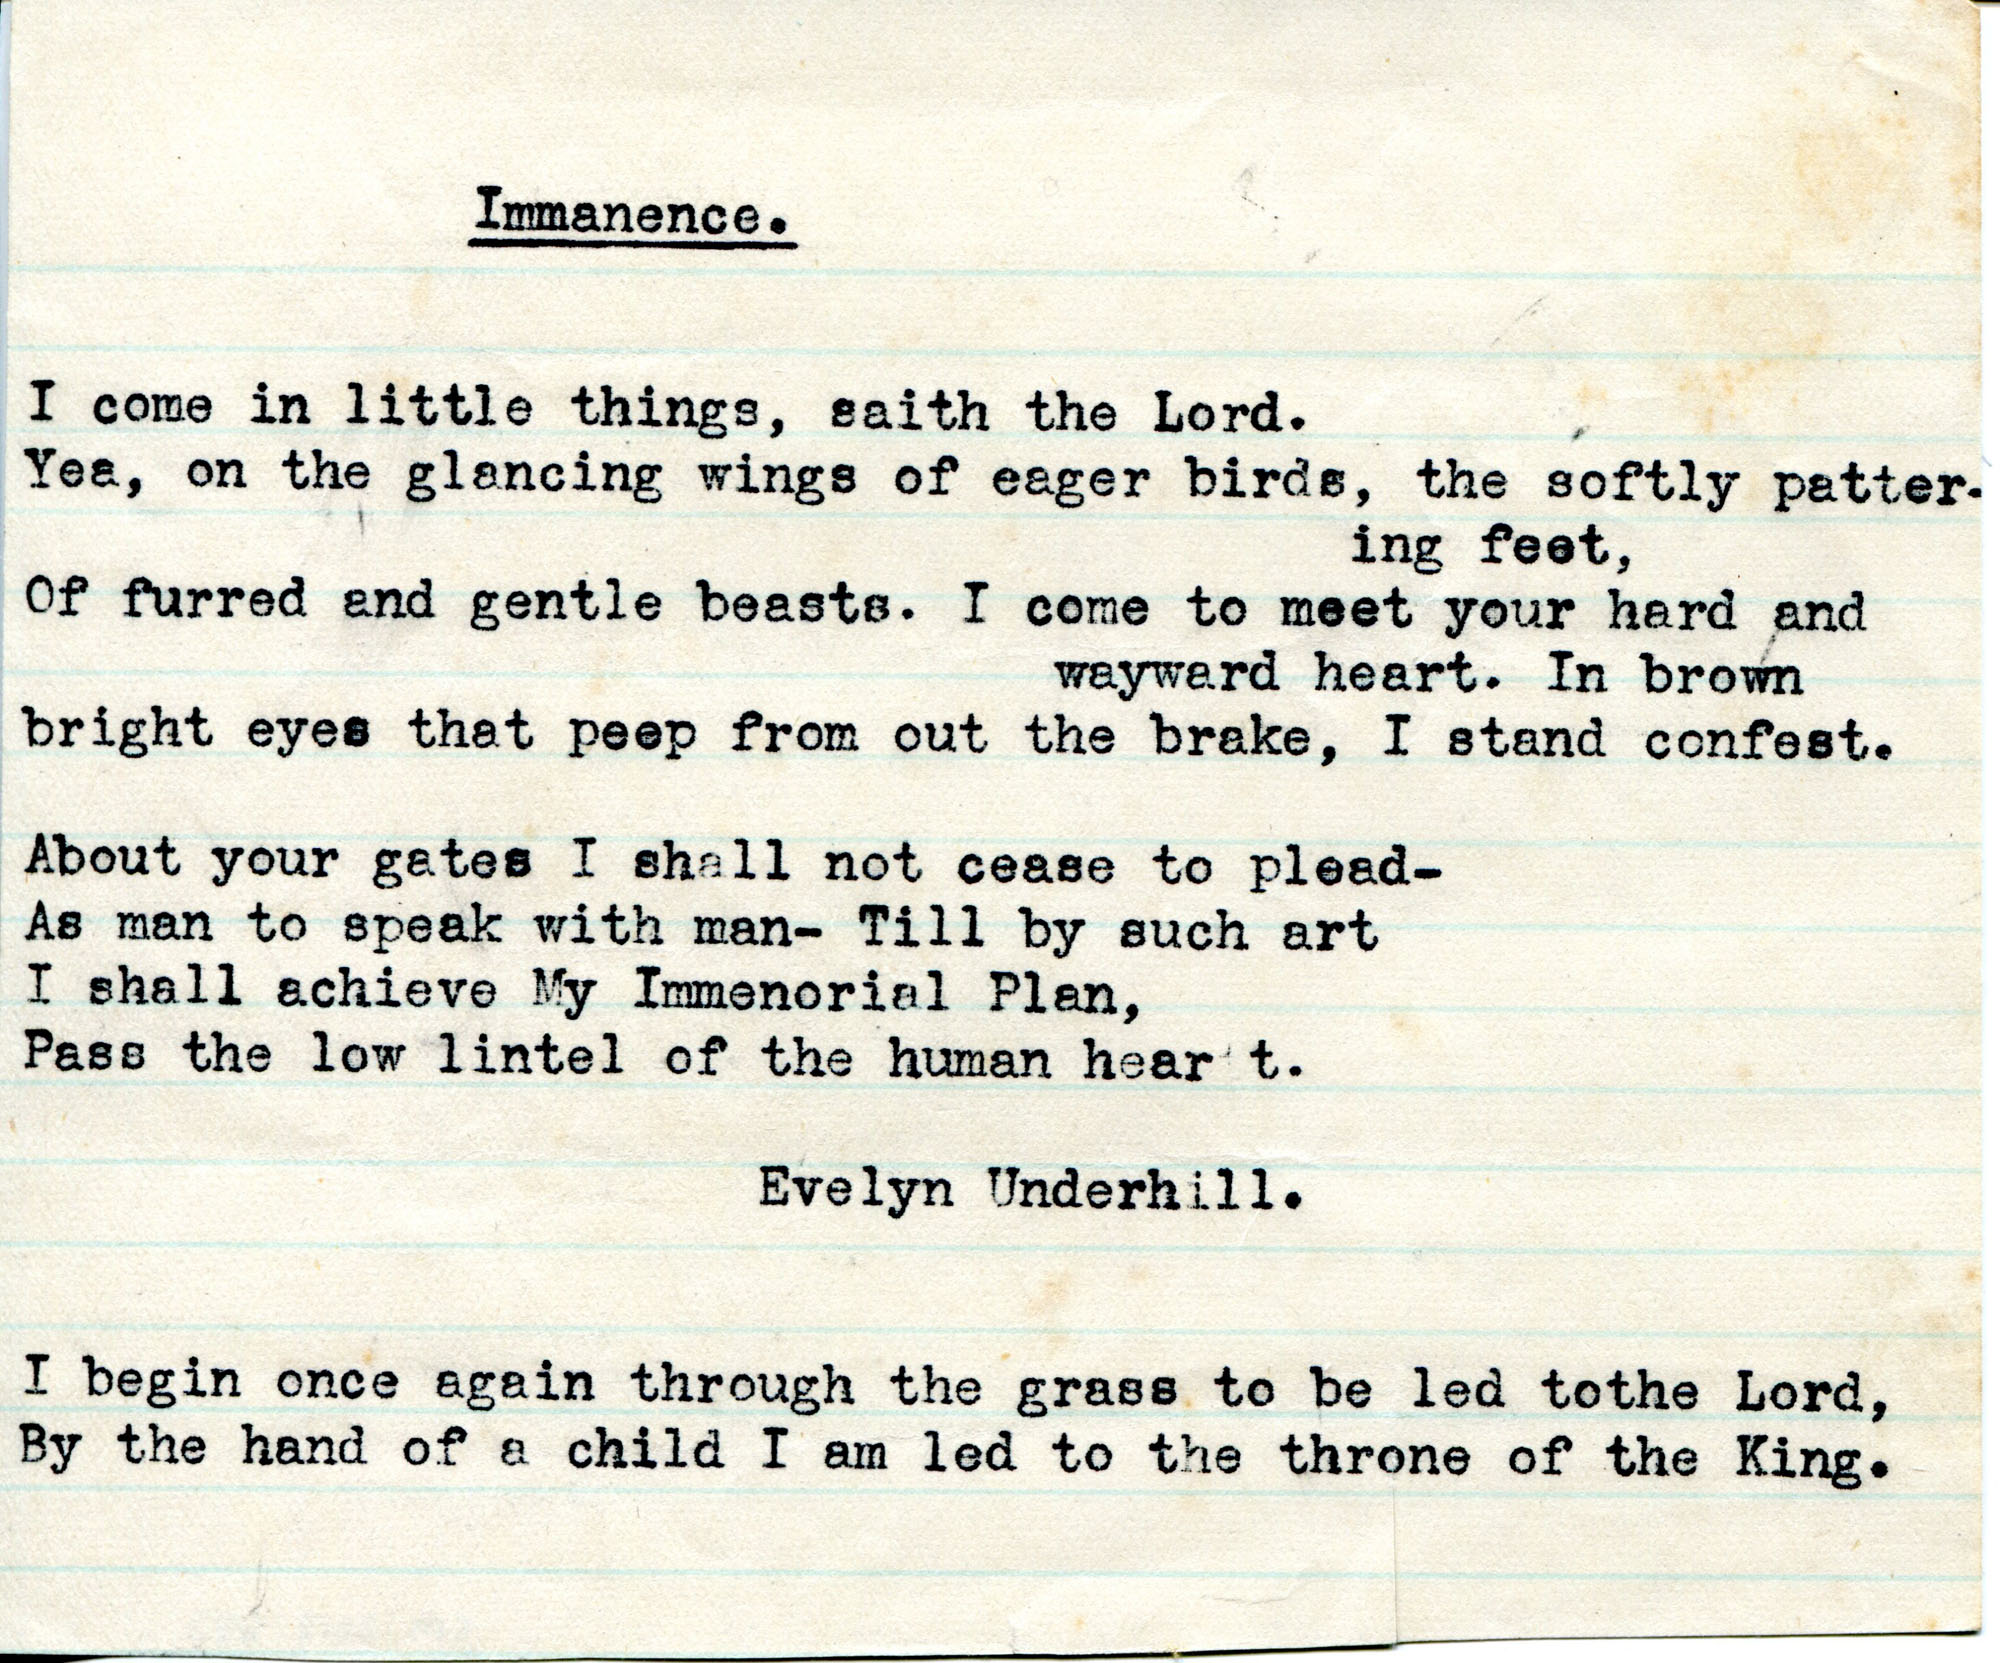 Immanence.
I come in little things, saith the Lord.
Yea, on the glancing wings of eager birds, the softly patter-
ing feet,
Of furred and gentle beasts. I come to meet your hard and
wayward heart. In brown
bright eyes that peep from out the brake, I stand confest.
About your gates I shall not cease to plead-
As man to speak with man- Till by such art
I shall achieve My Immenorial Plan,
Pass the low lintel of the human hear t.
Evelyn Underhill.
I begin once again through the grass to be led tothe Lord,
By the hand of a child I am led to the throne of the King.